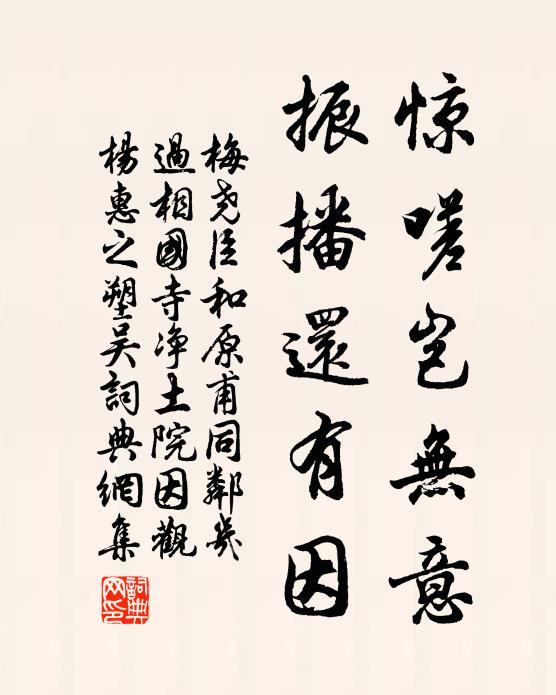 惊嗟岂無意
振播還有因
梅尧臣和原甫同鄰幾
過相國寺净土院因觀
楊惠之塑吴詞典網集
詞典
网印